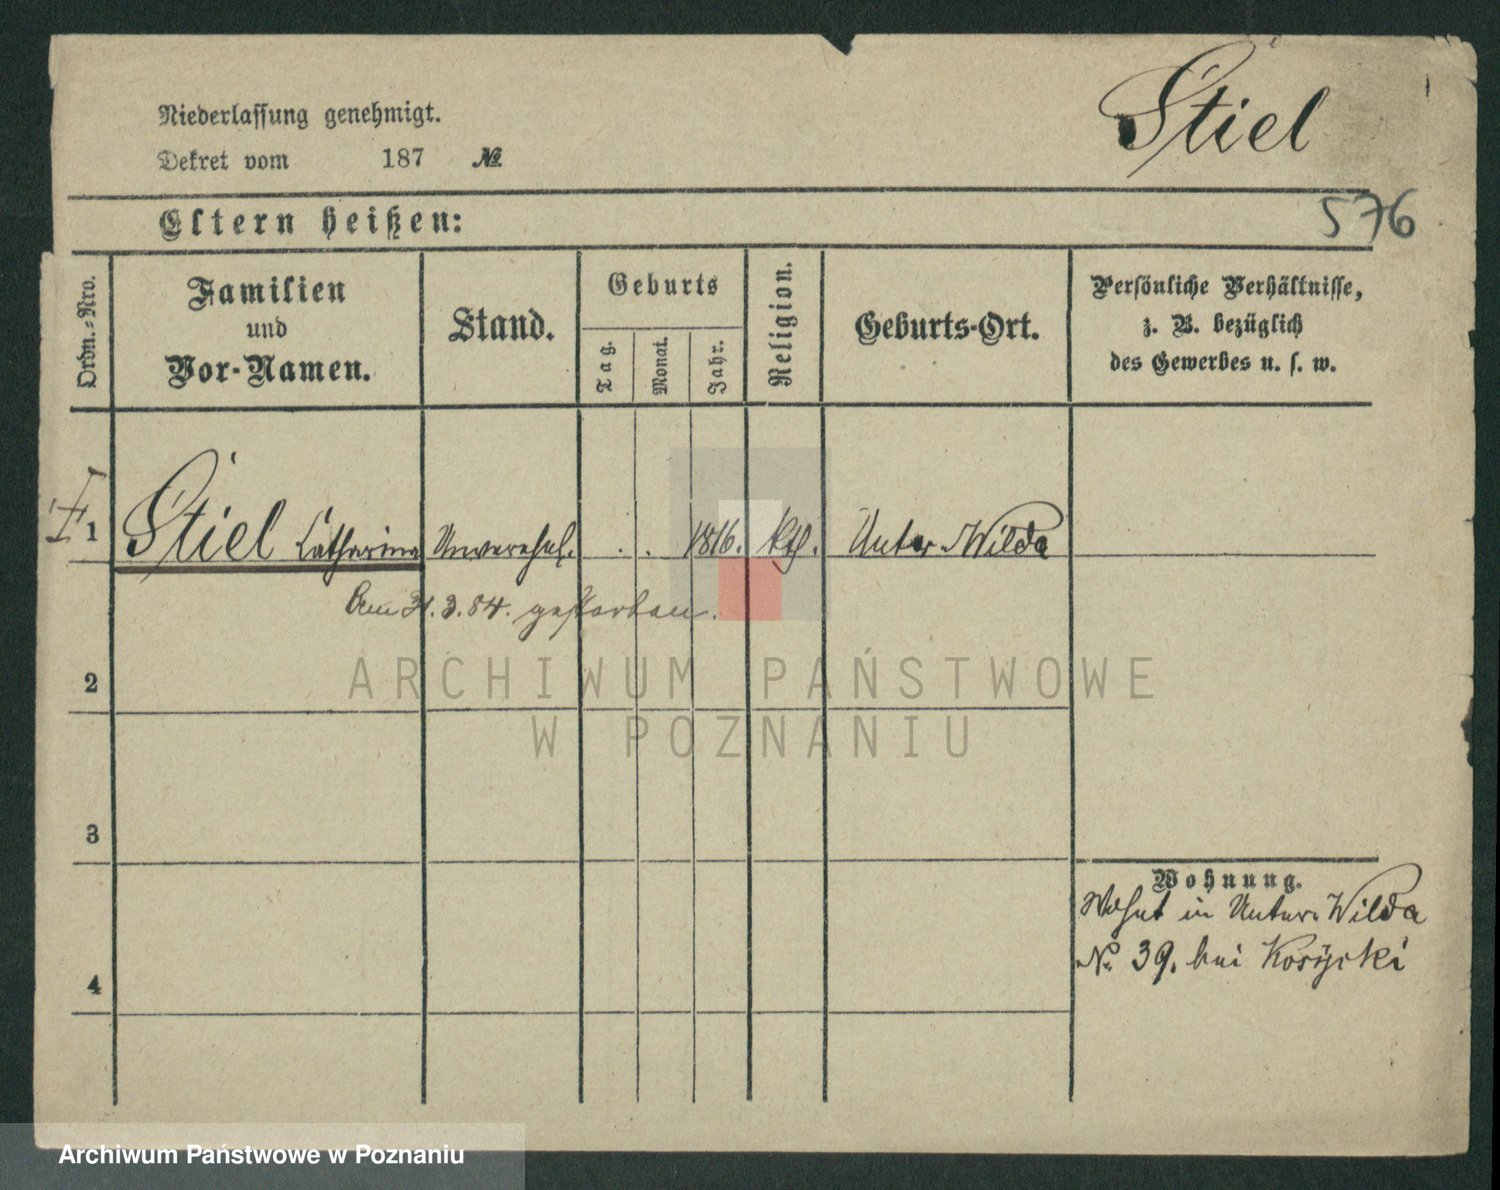 Stiel
Niederlassung genehmigt.
Dekret vom 187 №
576
Eltern heißen:
Ordn.-Nro.
Familien
und
Vor-Namen.
Stand.
Geburts
Tag.
Monat.
Jahr.
Religion.
Geburts-Ort.
Persönliche Verhältnisse,
z. B. bezüglich
des Gewerbes u. s. w.
1 Stiel Catharina Unverehel. . . 1816. kth. Unter-Wilda
Am 31.3.84. gestorben.
2
ARCHIWUM PAŃSTWOWE
W POZNANIU
3
Wohnung.
Wohnt in Unter-Wilda
№ 39. bei Kosycki
4
Archiwum Państwowe w Poznaniu